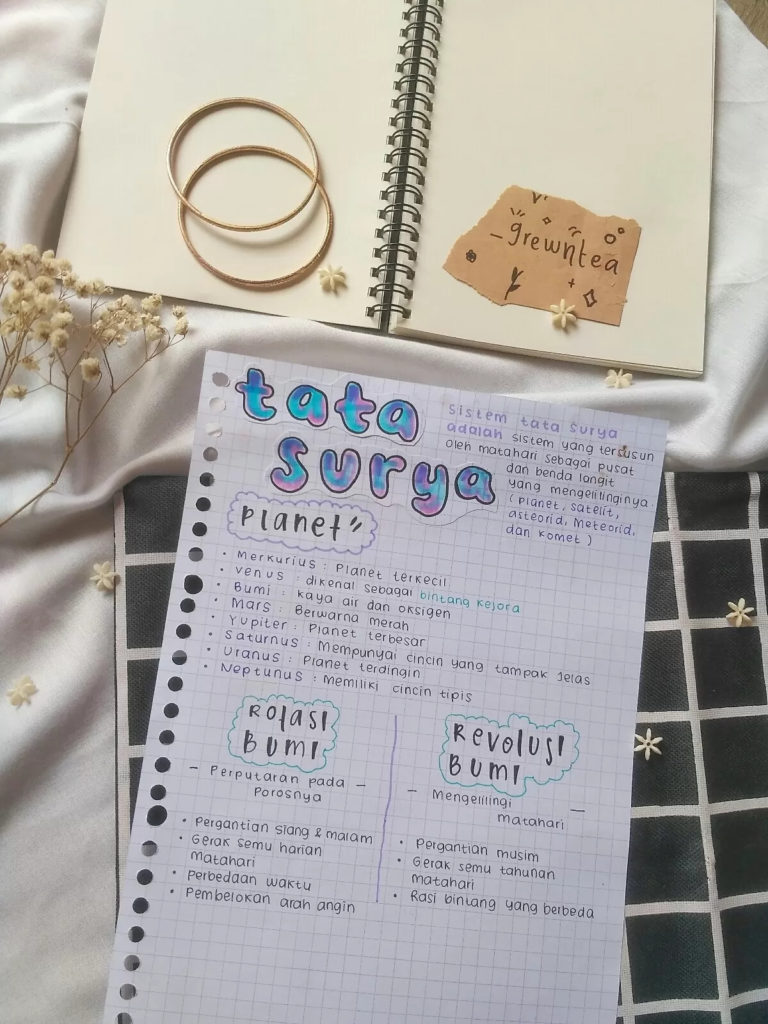 grewntea
tata
surya
sistem tata surya
adalah sistem yang tersusun
oleh matahari sebagai pusat
dan benda langit
yang mengelilinginya.
(Planet, satelit,
asteorid, Meteorid,
dan komet )
Planet
• Merkurius : Planet terkecil
• Venus : dikenal sebagai bintang kejora
• Bumi : kaya air dan oksigen
• Mars : Berwarna merah
• Yupiter : Planet terbesar
• Saturnus : Mempunyai cincin yang tampak jelas
• Uranus : Planet terdingin
• Neptunus : Memiliki cincin tipis
Rotasi
Bumi
– Perputaran pada –
Porosnya
• Pergantian siang & malam
• Gerak semu harian
matahari
• Perbedaan waktu
• Pembelokan arah angin
Revolusi
Bumi
– Mengelilingi
matahari –
• Pergantian musim
• Gerak semu tahunan
matahari
• Rasi bintang yang berbeda